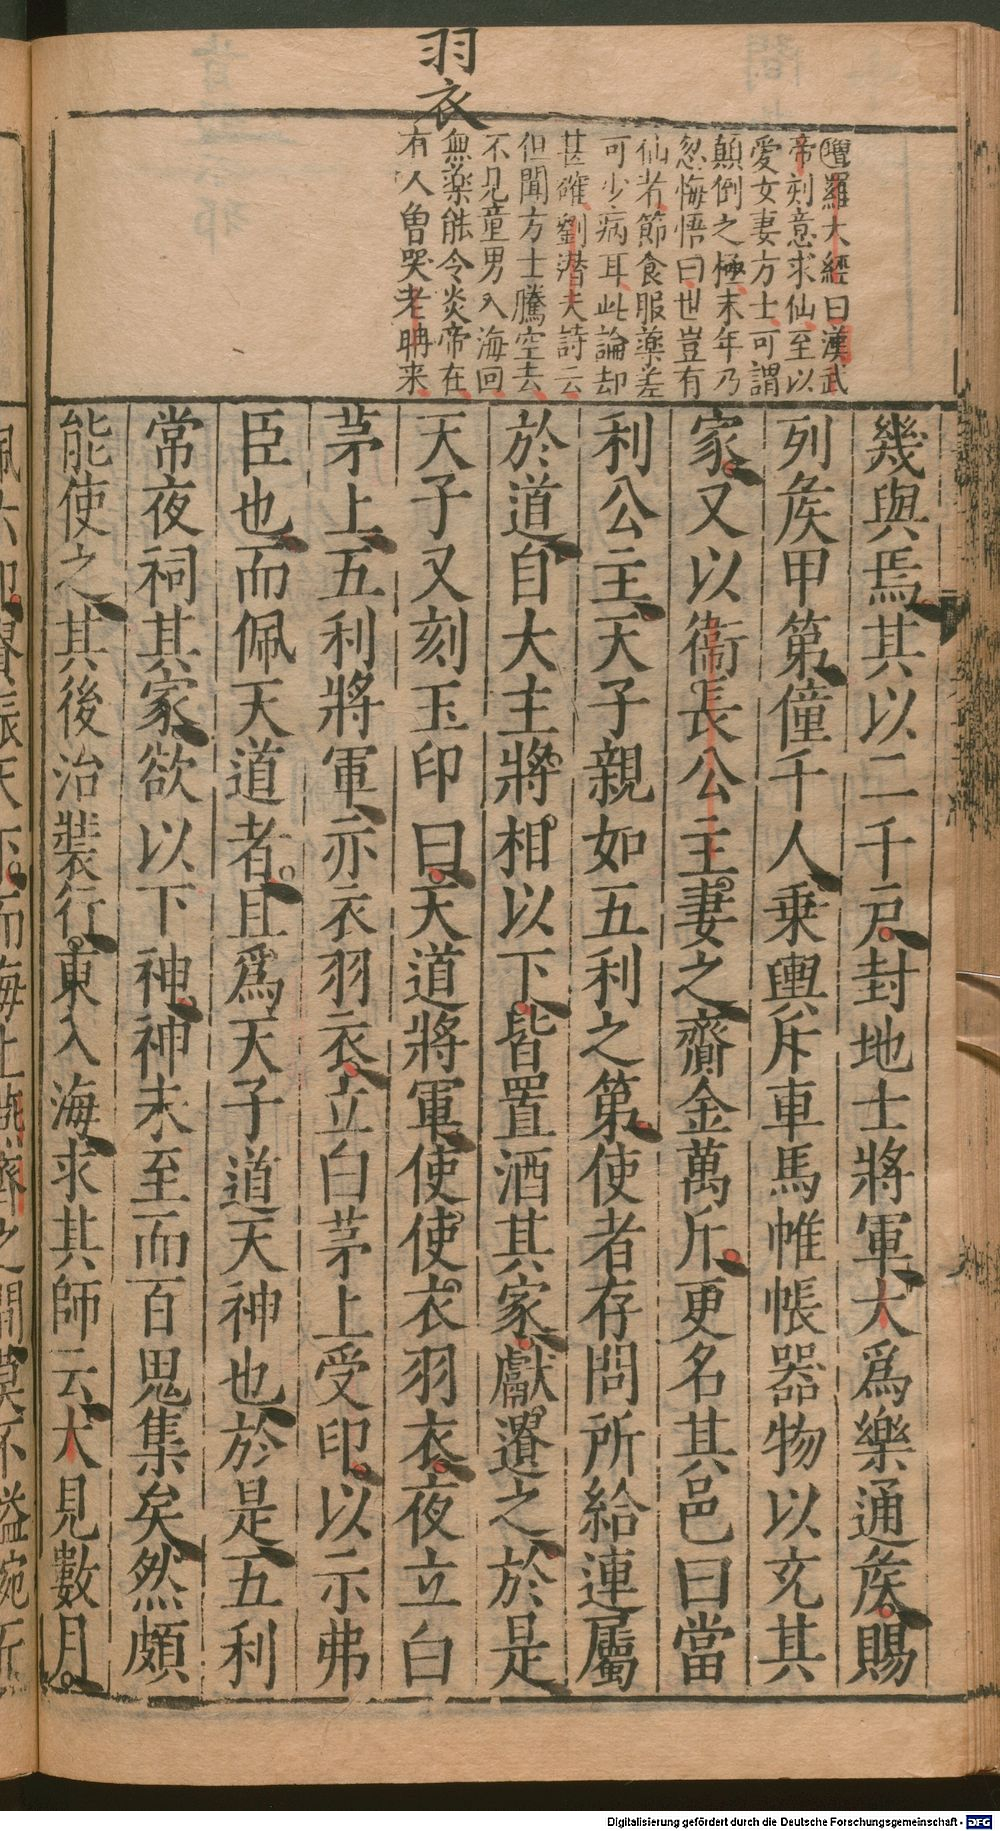 羽衣
增羅大經曰漢武
帝刻意求仙至以
愛女妻方士可謂
顛倒之極末年乃
忽悔悟曰世豈有
仙者節食服藥差
可少病耳此論却
甚確劉潛夫詩云
但聞方士騰空去
不見童男入海回
無藥能令炎帝在
有人曾哭老聃来
幾與焉其以二千戶封地士將軍大爲樂通矦賜
列矦甲第僮千人乗輿斥車馬帷帳器物以充其
家又以衞長公主妻之齎金萬斤更名其邑曰當
利公主天子親如五利之第使者存問所給連屬
於道自大主將相以下皆置酒其家獻遺之於是
天子又刻玉印曰天道將軍使使衣羽衣夜立白
茅上五利將軍亦衣羽衣立白茅上受印以示弗
臣也而佩天道者且爲天子道天神也於是五利
常夜祠其家欲以下神神未至而百鬼集矣然頗
能使之其後治装行東入海求其師云大見數月
佩六印貴振天下而海上燕齊之間莫不搤捥
Digitalisierung gefördert durch die Deutsche Forschungsgemeinschaft - DFG